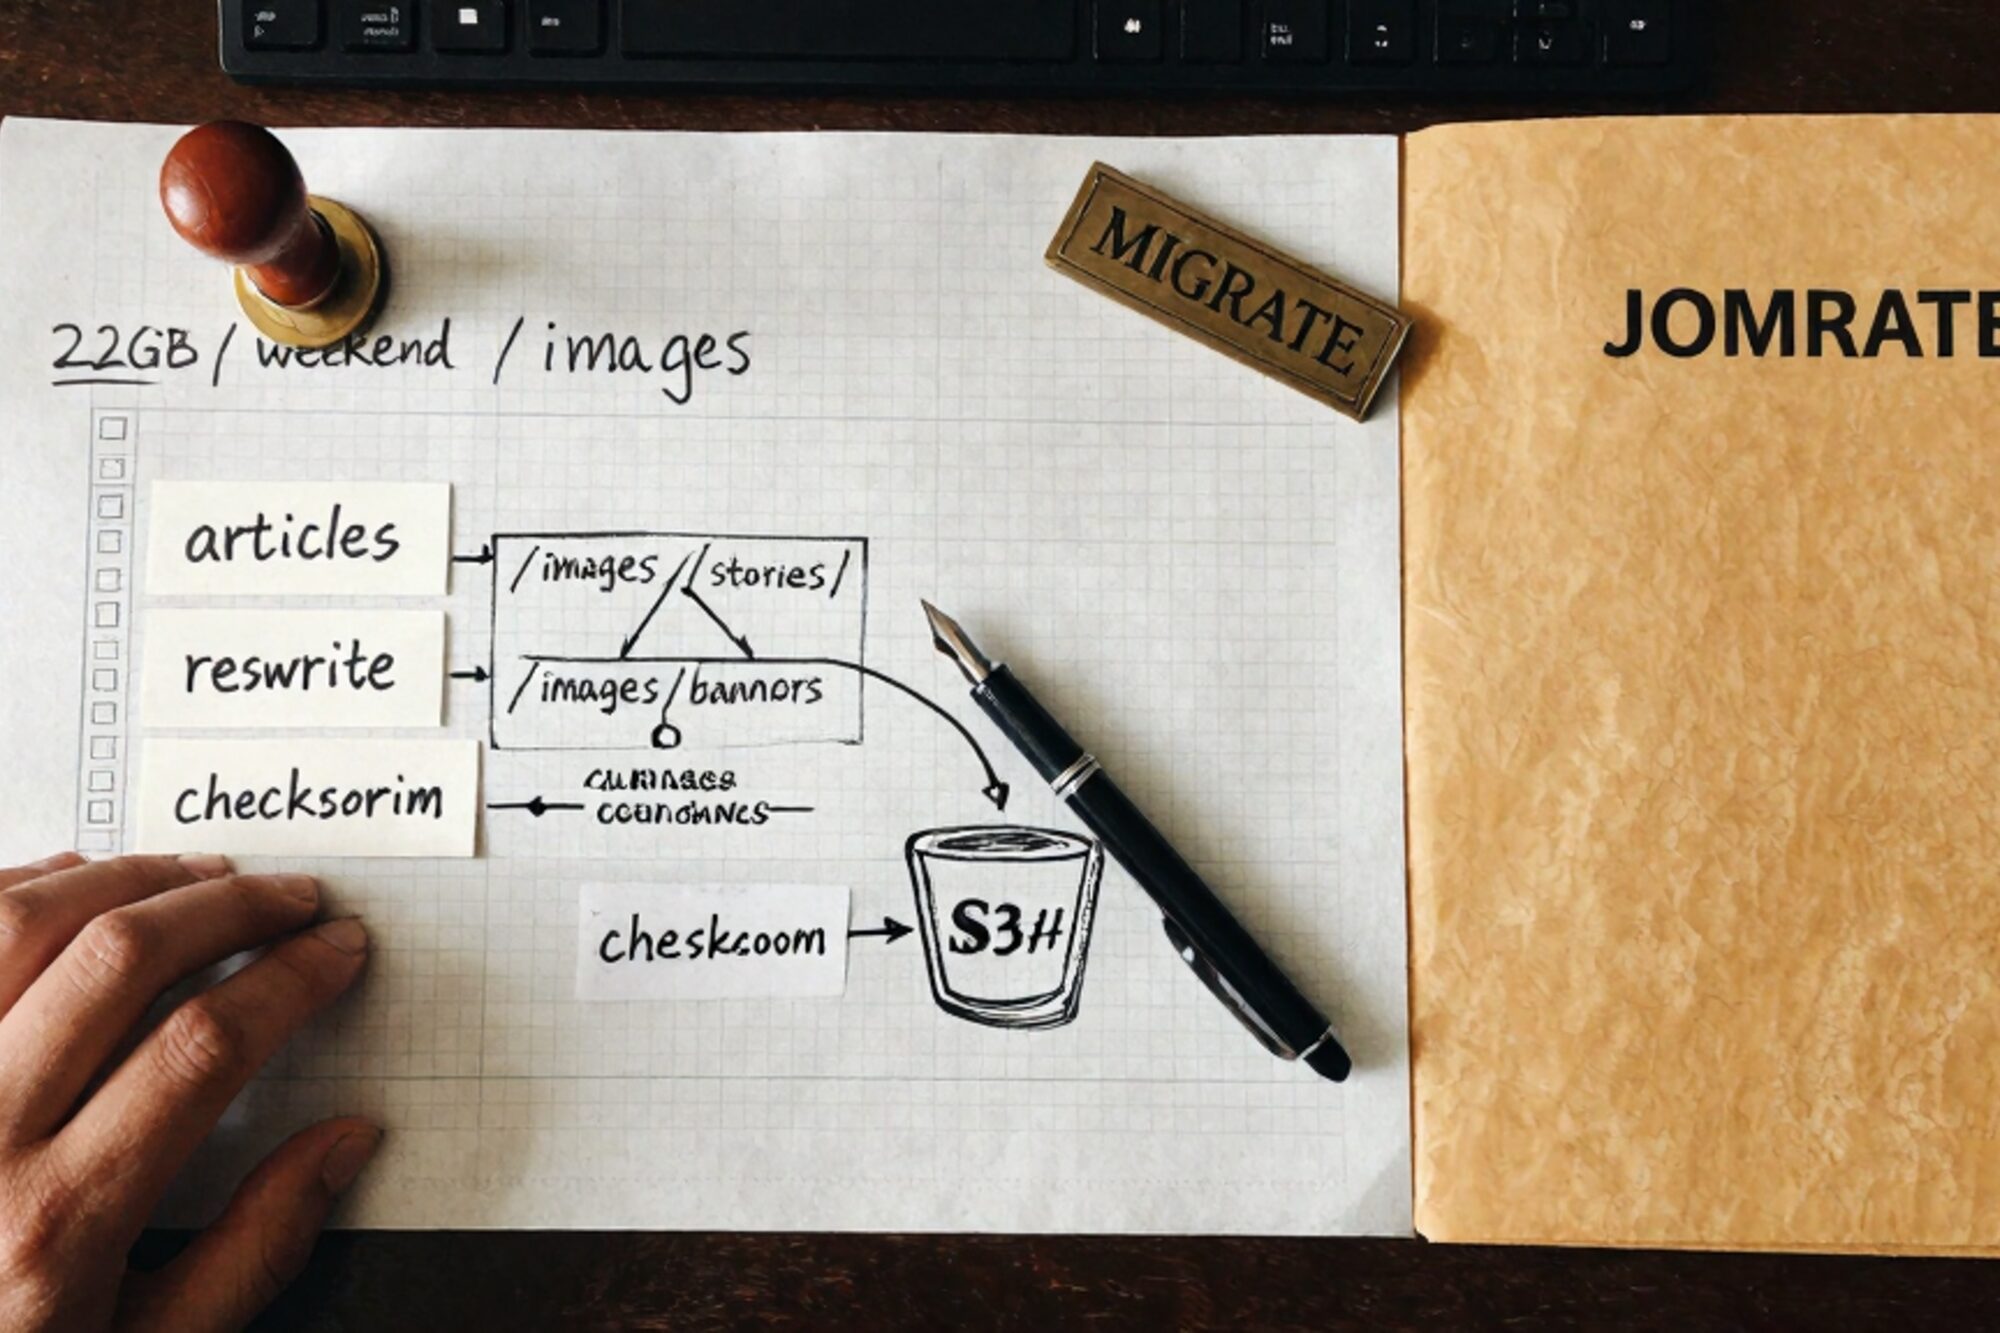 MIGRATE
JOMRATE
22GB / weekend / images
articles
/images//stories/
reswrite
/images/bannors
checksorim
cheskcoom
S3#